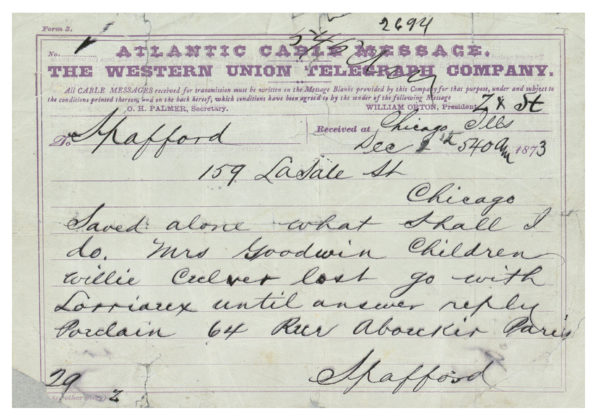 Form 2.
2694
No. 1
ATLANTIC CABLE MESSAGE.
THE WESTERN UNION TELEGRAPH COMPANY.
All CABLE MESSAGES received for transmission must be written on the Message Blanks provided by this Company for that purpose, under and subject to
the conditions printed thereon, and on the back hereof, which conditions have been agreed to by the sender of the following Message
O. H. PALMER, Secretary. WILLIAM ORTON, President.
To Spafford
Received at Chicago Ills
Dec 540 am 1873
159 LaSale St
Chicago
Saved alone what shall I
do. Mrs Goodwin Children
Willie Culver lost go with
Lorriaux until answer reply
Porclain 64 Rue Aboukir Paris
Spafford
29